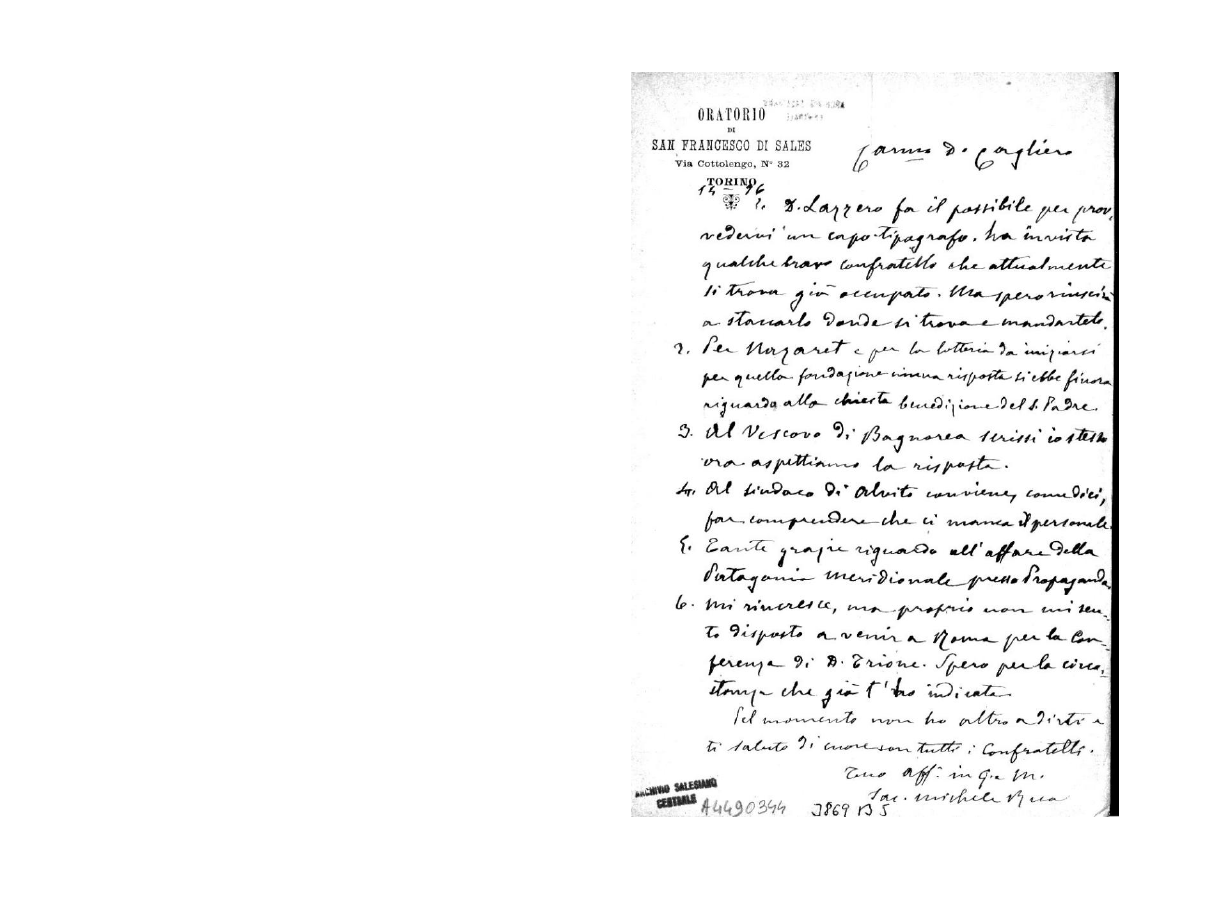 ORATORIO
DI
SAN FRANCESCO DI SALES
Via Cottolengo, N° 32
TORINO
Carmo D. Cagliero
1. D. Lazzero fa il possibile per prov,
vedervi un capo-tipografo. ha in vista
qualche bravo confratello che attualmente
si trova già occupato. Ma spero riuscirà
a staccarlo donde si trova e mandartelo.
2. Per Nazaret e per la lotteria da iniziarsi
per quella fondazione niuna risposta si ebbe finora
riguardo alla chiesta benedizione del S. Padre.
3. Al Vescovo di Bagnorea scrissi io stesso
ora aspettiamo la risposta.
4. Al sindaco di Alvito conviene, come dici,
far comprendere che ci manca il personale.
5. Tante grazie riguardo all'affare della
Patagonia meridionale presso Propaganda.
6. Mi rincresce, ma proprio non mi sen-
to disposto a venir a Roma per la Con-
ferenza di D. Trione. Spero per la circo-
stanza che già t'ho indicata
Pel momento non ho altro a dirti e
ti saluto di cuore con tutti i Confratelli.
Tuo aff. in G. e M.
Sac. Michele Rua
ARCHIVIO SALESIANO
CENTRALE
A4490344
3869 B 5